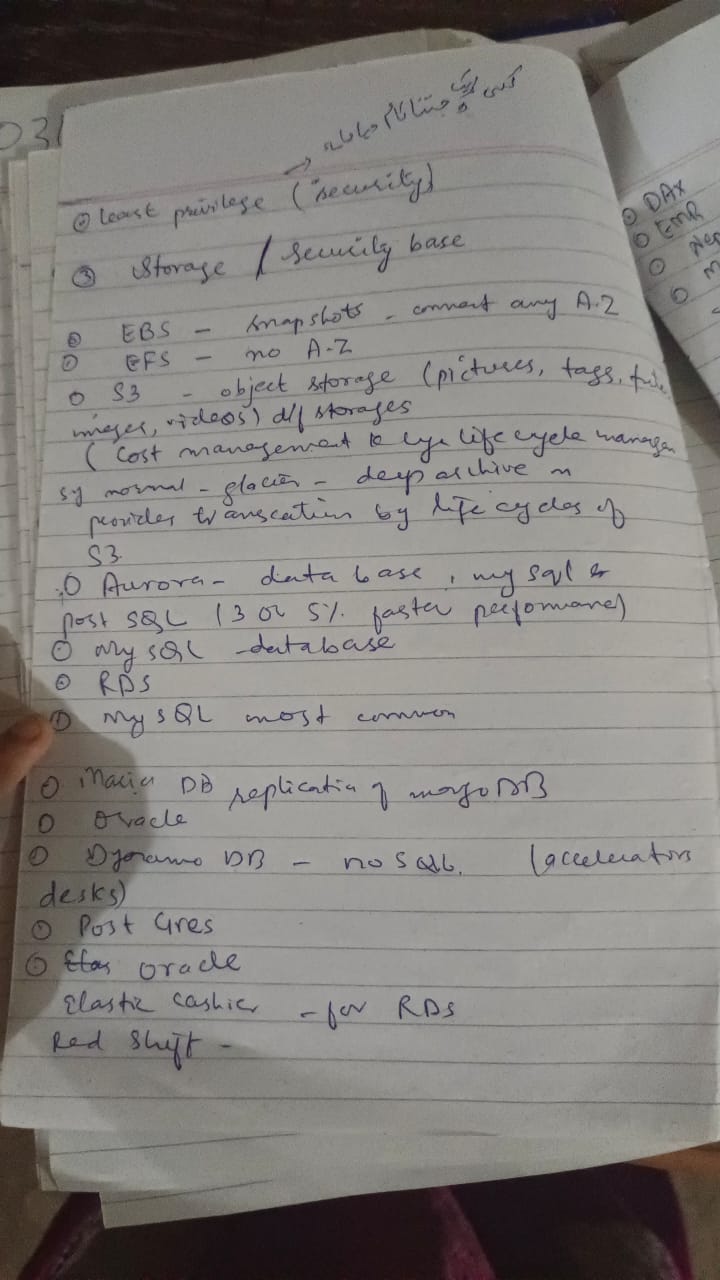 031
کسی کو جتنا کام چاہیے
→
② least privilege ("security)
③ Storage / Security base
○ EBS - snapshots - connect any A-Z
○ EFS - no A-Z
○ S3 - object storage (pictures, tags, file
images, videos) d/f storages
( Cost management life cycle manager
sy normal - glacier - deep archive n
provides by life cycles of
S3
○ Aurora - data base, my sql &
post SQL (3 or 5% faster performance)
○ My SQL - database
○ RDS
○ My SQL most common
○ Maria DB replicatin of mongoDB
○ Oracle
○ Dynamo DB - no SQL. (accelerators
desks)
○ Post Gres
○ oracle
Elastic cashier - for RDS
Red Shift -
○ DAX
○ EMR
○ Nep
○ M